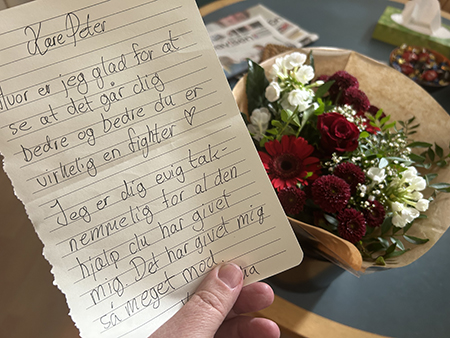 Kære Peter
Hvor er jeg glad for at
se at det går dig
bedre og bedre du er
virkelig en fighter ♡
Jeg er dig evig tak-
nemmelig for al den
hjælp du har givet
mig. Det har givet mig
så meget mod